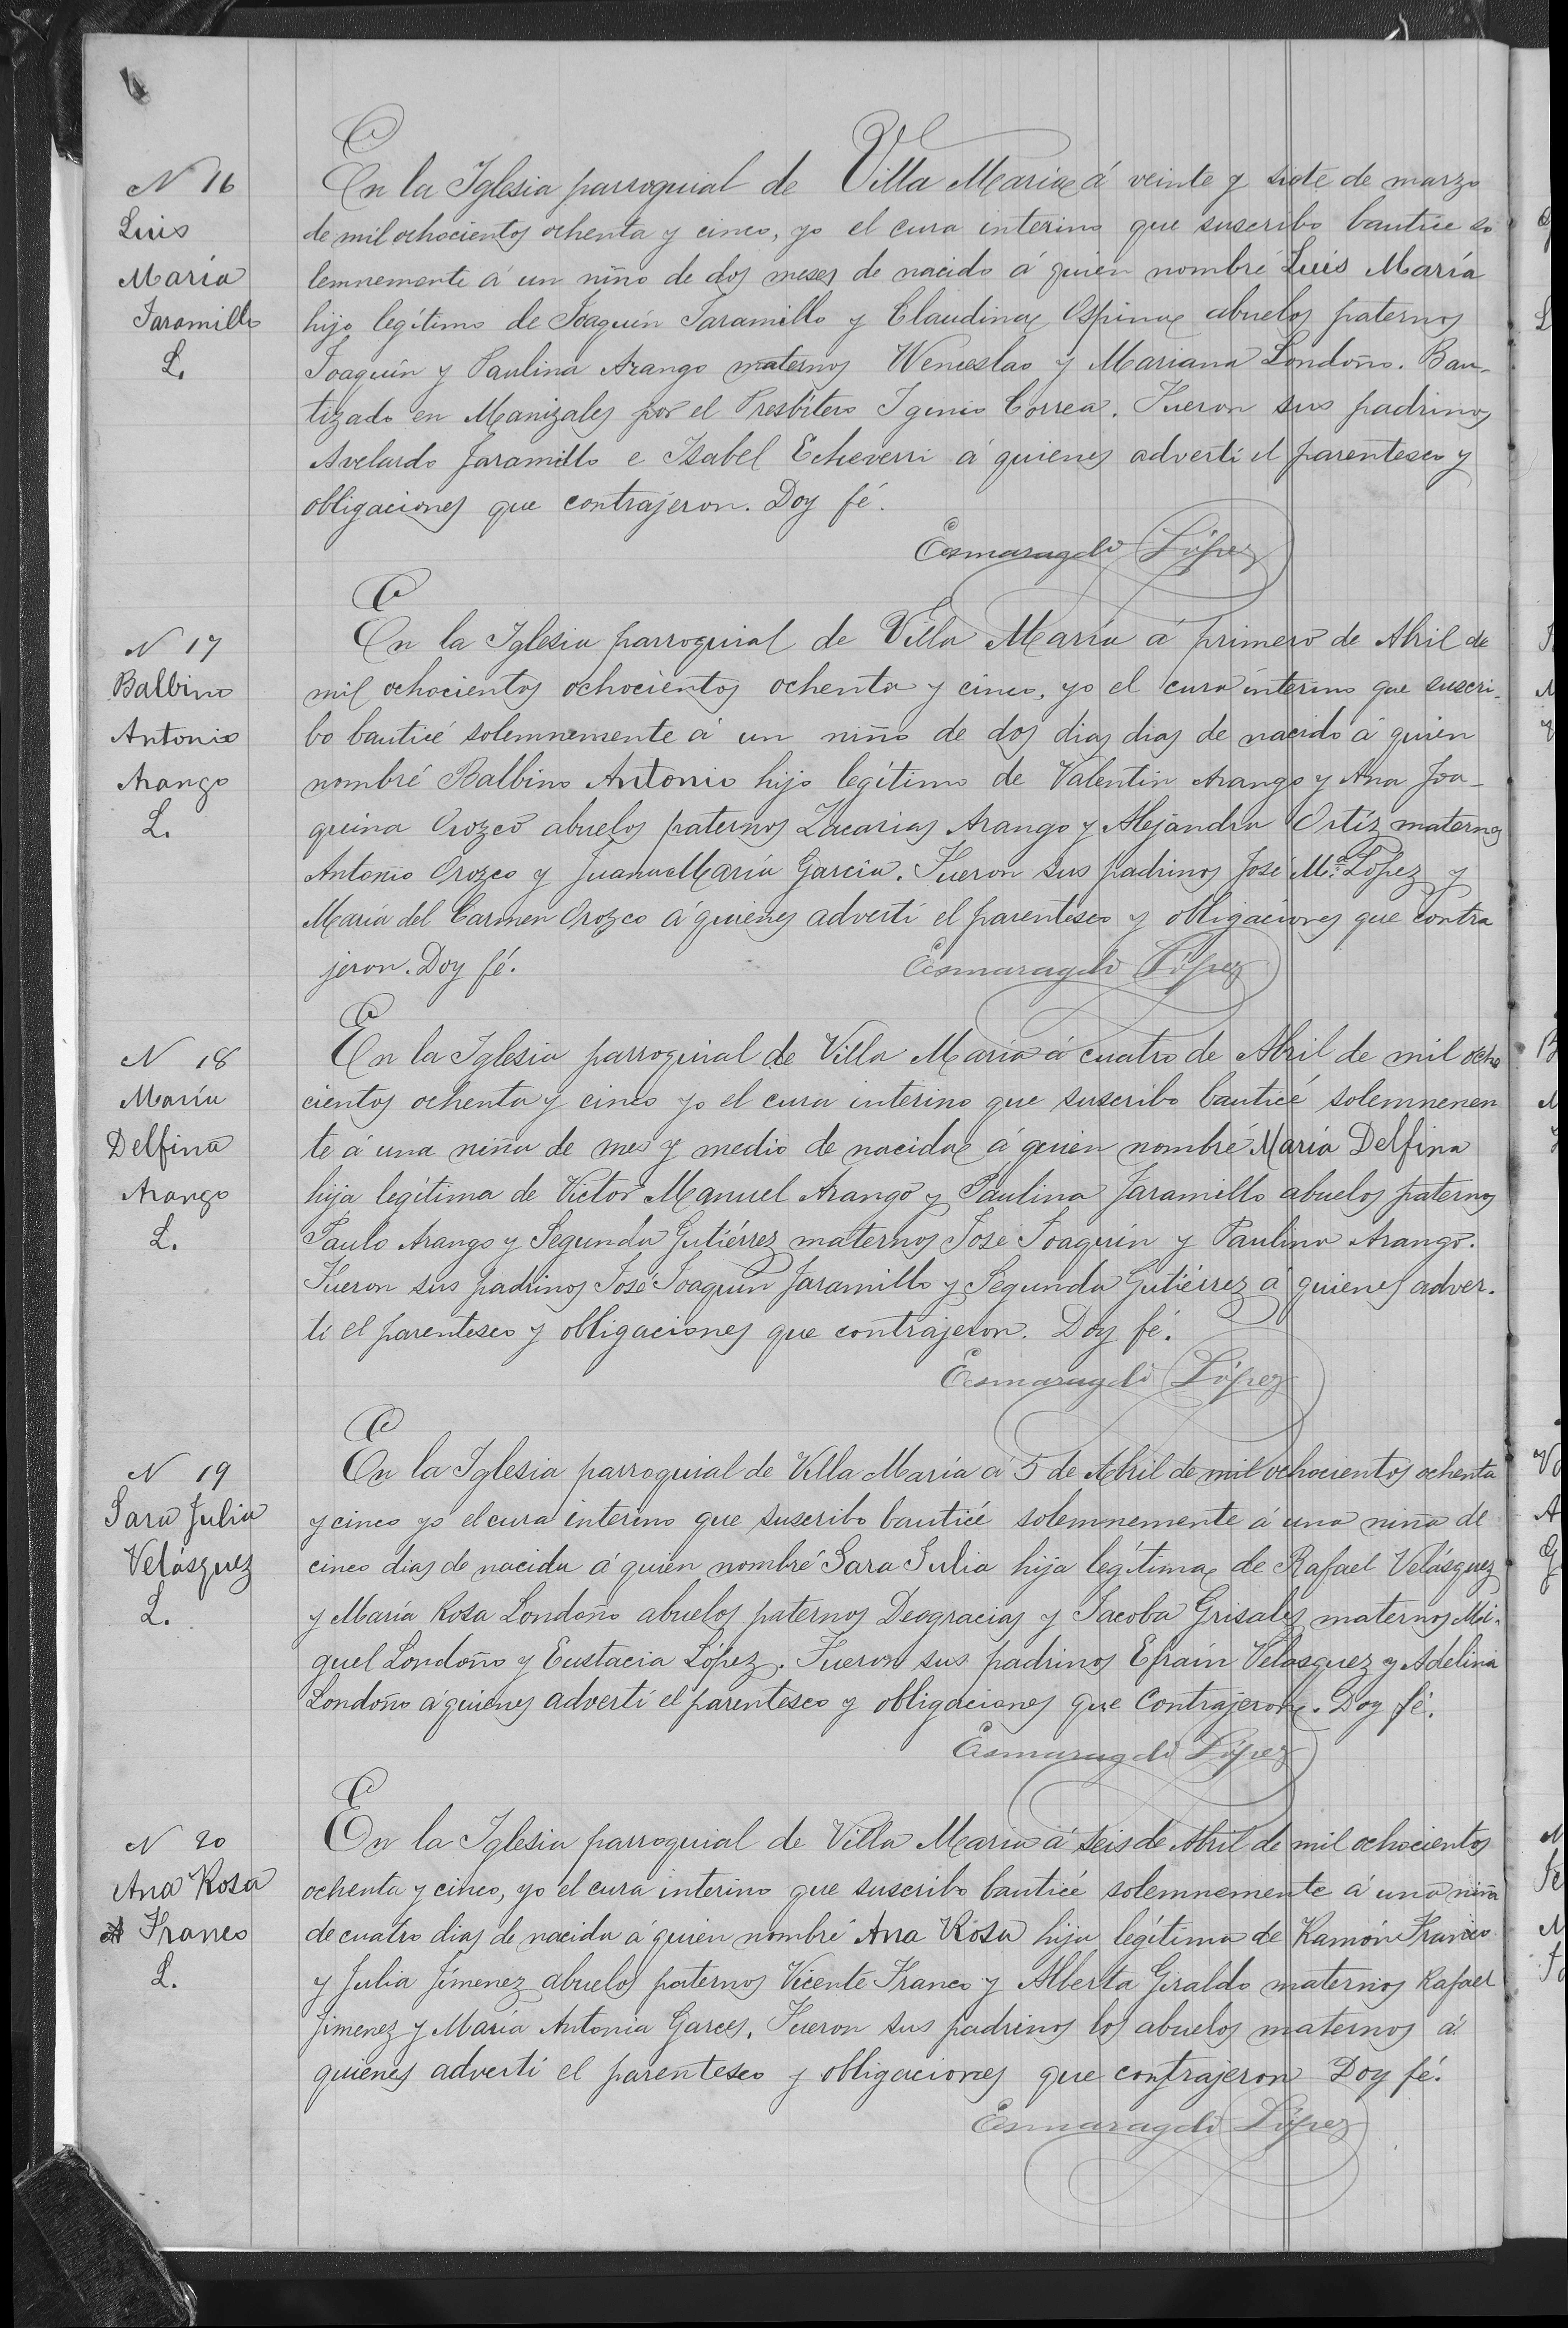 N 16
Luis
María
Jaramillo
L.
En la Iglesia parroquial de Villa María á veinte y siete de marzo
de mil ochocientos ochenta y cinco, yo el cura interino que suscribo bauticé so
lemnemente á un niño de dos meses de nacido á quien nombré Luis María
hijo legítimo de Joaquín Jaramillo y Claudina Ospina abuelos paternos
Joaquín y Paulina Arango maternos Wenceslao y Mariana Londoño. Bau-
tizado en Manizales por el Presbítero Igenio Correa. Fueron sus padrinos
Avelardo Jaramillo e Isabel Echeverri á quienes advertí el parentesco y
obligaciones que contrajeron. Doy fé.
Esmaragdo López
N 17
Balbino
Antonio
Arango
L.
En la Iglesia parroquial de Villa María á primero de Abril de
mil ochocientos ochocientos ochenta y cinco, yo el cura interino que suscri-
bo bauticé solemnemente á un niño de dos dias dias de nacido á quien
nombré Balbino Antonio hijo legítimo de Valentin Arango y Ana Joa-
quina Orozco abuelos paternos Zacarias Arango y Alejandra Ortíz maternos
Antonio Orozco y Juana María García. Fueron sus padrinos José Mª López y
María del Carmen Orozco á quienes advertí el parentesco y obligaciones que contra
jeron. Doy fé.
Esmaragdo López
N 18
María
Delfina
Arango
L.
En la Iglesia parroquial de Villa María á cuatro de Abril de mil ocho
cientos ochenta y cinco yo el cura interino que suscribo bauticé solemnemen
te á una niña de mes y medio de nacida á quien nombré María Delfina
hija legítima de Víctor Manuel Arango y Paulina Jaramillo abuelos paternos
Paulo Arango y Segunda Gutiérrez maternos José Joaquín y Paulina Arango.
Fueron sus padrinos José Joaquín Jaramillo y Segunda Gutiérrez á quienes adver-
tí el parentesco y obligaciones que contrajeron. Doy fé.
Esmaragdo López
N 19
Sara Julia
Velásquez
L.
En la Iglesia parroquial de Villa María á 5 de Abril de mil ochocientos ochenta
y cinco yo el cura interino que suscribo bauticé solemnemente á una niña de
cinco dias de nacida á quien nombré Sara Julia hija legítima de Rafael Velásquez
y María Rosa Londoño abuelos paternos Deogracias y Jacoba Grisales maternos Mi-
guel Londoño y Eustacia López. Fueron sus padrinos Efraín Velasquez y Adelina
Londoño á quienes advertí el parentesco y obligaciones que contrajeron. Doy fé.
Esmaragdo López
N 20
Ana Rosa
Franco
L.
En la Iglesia parroquial de Villa María á seis de Abril de mil ochocientos
ochenta y cinco, yo el cura interino que suscribo bauticé solemnemente á una niña
de cuatro dias de nacida á quien nombré Ana Rosa hija legítima de Ramón Franco
y Julia Jímenez abuelos paternos Vicente Franco y Alberta Giraldo maternos Rafael
Jimenez y María Antonia Garces. Fueron sus padrinos los abuelos maternos á
quienes advertí el parentesco y obligaciones que contrajeron Doy fé.
Esmaragdo López